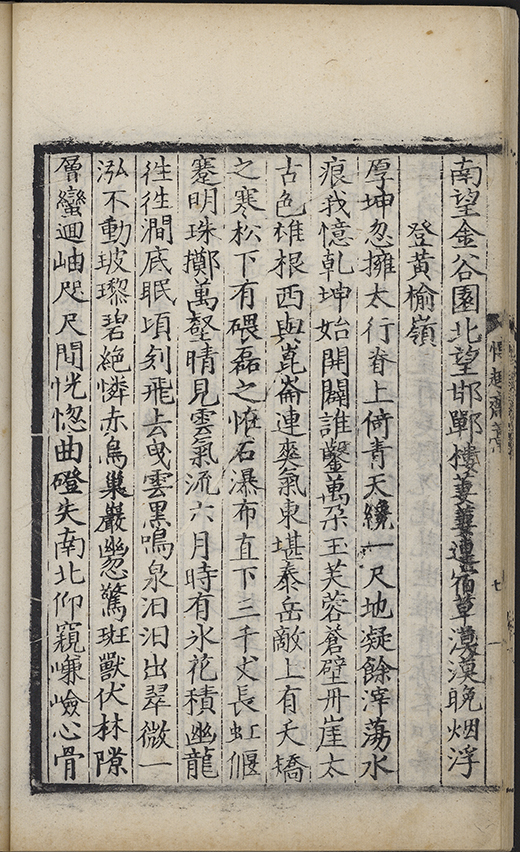 南望金谷園北望邯鄲樓萋萋連宿草漠漠晚烟浮
登黃榆嶺
厚坤忽擁太行脊上倚青天纔一尺地凝餘滓蕩水
痕我憶乾坤始開闢誰鑿萬朶玉芙蓉蒼壁丹崖太
古色雄根西與崑崙連爽氣東堪泰岳敵上有夭矯
之寒松下有磈磊之恠石瀑布直下三千丈長虹偃
蹇明珠擲萬壑晴見雲氣流六月時有氷花積幽龍
徃徃澗底眠頃刻飛去曳雲黑鳴泉汩汩出翠微一
泓不動玻瓈碧絶憐赤烏巢巖幽忽驚斑獸伏林隙
層巒迴岫咫尺間恍惚曲磴失南北仰窺㠗嶮心骨
七